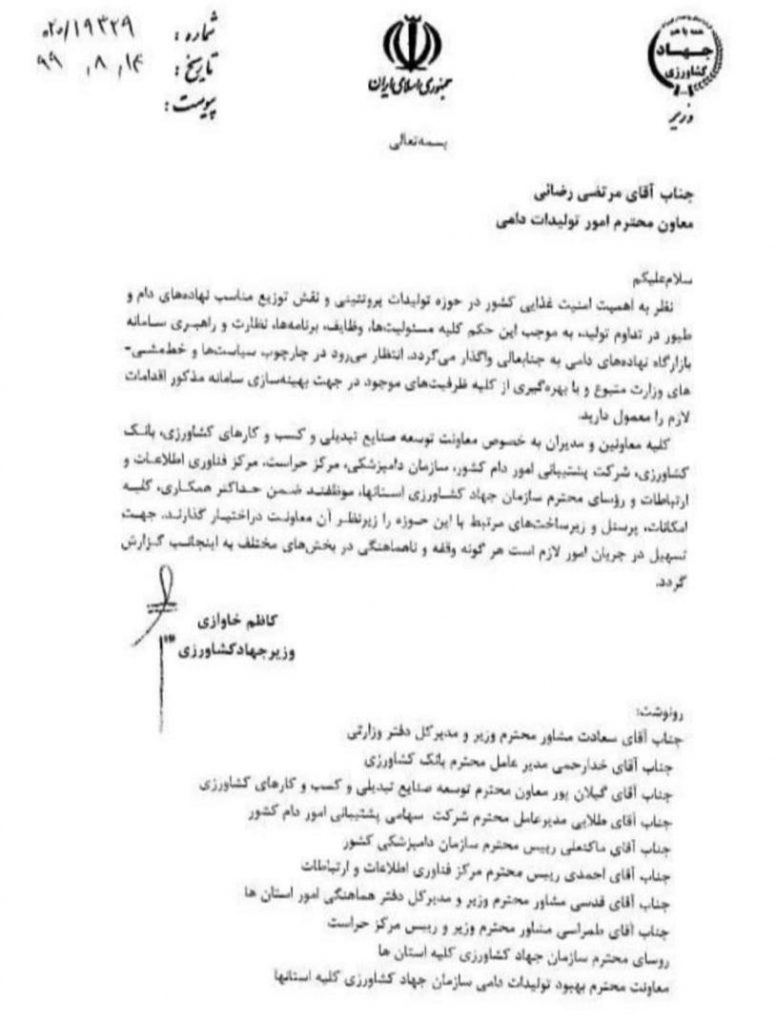 شماره: ۰۲۰/۱۹۳۲۹
تاریخ: ۹۹، ۸، ۱۴
پیوست:
جمهوری اسلامی ایران
همه با هم
جهاد
کشاورزی
وزیر
بسمه‌تعالی
جناب آقای مرتضی رضائی
معاون محترم امور تولیدات دامی
سلام‌علیکم
نظر به اهمیت امنیت غذایی کشور در حوزه تولیدات پروتئینی و نقش توزیع مناسب نهاده‌های دام و
طیور در تداوم تولید، به موجب این حکم کلیه مسئولیت‌ها، وظایف، برنامه‌ها، نظارت و راهبری سامانه
بازارگاه نهاده‌های دامی به جنابعالی واگذار می‌گردد. انتظار می‌رود در چارچوب سیاست‌ها و خط‌مشی-
های وزارت متبوع و با بهره‌گیری از کلیه ظرفیت‌های موجود در جهت بهینه‌سازی سامانه مذکور اقدامات
لازم را معمول دارید.
کلیه معاونین و مدیران به خصوص معاونت توسعه صنایع تبدیلی و کسب و کارهای کشاورزی، بانک
کشاورزی، شرکت پشتیبانی امور دام کشور، سازمان دامپزشکی، مرکز حراست، مرکز فناوری اطلاعات و
ارتباطات و رؤسای محترم سازمان جهاد کشاورزی استانها، موظفند ضمن حداکثر همکاری، کلیه
امکانات، پرسنل و زیرساخت‌های مرتبط با این حوزه را زیرنظر آن معاونت دراختیار گذارند. جهت
تسهیل در جریان امور لازم است هر گونه وقفه و ناهماهنگی در بخش‌های مختلف به اینجانب گزارش
گردد.
کاظم خاوازی
وزیرجهادکشاورزی
رونوشت:
جناب آقای سعادت مشاور محترم وزیر و مدیرکل دفتر وزارتی
جناب آقای خدارحمی مدیر عامل محترم بانک کشاورزی
جناب آقای گیلان پور معاون محترم توسعه صنایع تبدیلی و کسب و کارهای کشاورزی
جناب آقای طلایی مدیرعامل محترم شرکت سهامی پشتیبانی امور دام کشور
جناب آقای ماکنعلی رییس محترم سازمان دامپزشکی کشور
جناب آقای احمدی رییس محترم مرکز فناوری اطلاعات و ارتباطات
جناب آقای قدسی مشاور محترم وزیر و مدیرکل دفتر هماهنگی امور استان ها
جناب آقای طمراسی مشاور محترم وزیر و رییس مرکز حراست
روسای محترم سازمان جهاد کشاورزی کلیه استان ها
معاونت محترم بهبود تولیدات دامی سازمان جهاد کشاورزی کلیه استانها